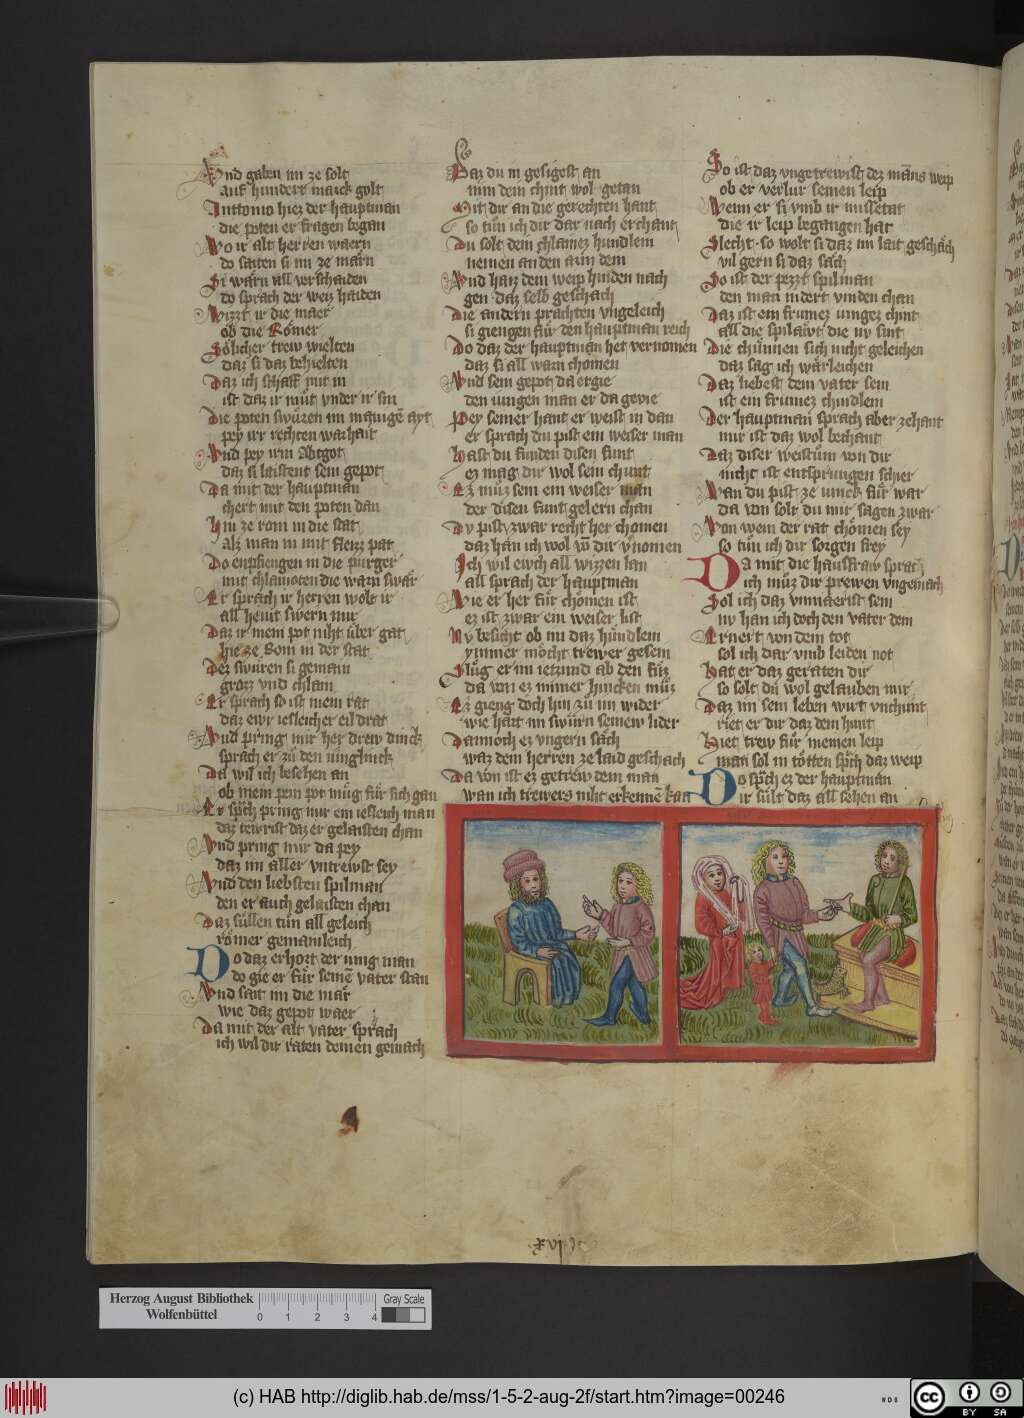 Vnd gaben im ze solt
auf hundert marck golt
Anttonio hiez der hauptman
die poten er fragen began
Wo ir alt herren waern
do saiten si im ze märn
Si wärn all verschaiden
do sprach der weiz haiden
Wizzt ir die maer
ob die Römer
Sölicher trew wielten
daz si daz behielten
Daz ich schaff mit in
ist daz ir müt vnder ir sin
Die poten swüren im
pey irr rechten warhait
Vnd pey irm Abtgot
daz si laistent sein gepot
Da mit der hauptman
chert mit den poten dan
Hin ze rom in die stat
alz man in mit fleizz pat
Do enpfiengen in die purger
mit chlainoten die warn swär
Er sprach ir herren wolt ir
all hewt swern mir
Daz ir mein pot niht über gat
hie ze Rom in der stat
Dez swüren si gemain
grozz vnd chlain
Er sprach so ist mein rat
daz ewr iesleicher eil drat
Vnd pring mir her drew dinck
sprach er zü den iunglinck
Da wil ich besehen an
ob mein pein pot müg für sich gan
Er sprch pring mir ein iesleich man
daz tewrist daz er gelaisten chan
Vnd pring mir da pey
daz im aller vntrewst sey
Vnd den liebsten spilman
den er auch gelaisten chan
Daz süllen tün all geleich
römer gemainleich
Do daz erhort der iung man
do gie er für seinē vater stan
Vnd sait im die mär
wie daz gepot waer
Da mit der alt vater sprach
ich wil dir raten deinen gemach
Daz du in gesigest an
nim dein chint wol getan
Mit dir an die gerechten hant
so tün ich dir dar nach erchant
Du solt dem chlainez hundlein
nemen an den arm dein
Vnd haiz dem weip hinden nach
gen daz selb geschach
Die andern prachten vngeleich
si giengen für den hauptman reich
Do daz der hauptman het vernomen
daz si all warn chomen
Vnd sein gepot da ergie
den iungen man er da gevie
Pey seiner hant er weist in dan
er sprach du pist ein weiser man
Hast du funden disen funt
ez mag dir wol sein chunt
Ez müz sein ein weiser man
der disen funt gelern chan
Dv pist zwar recht her chomen
daz han ich wol vō dir vnomen
Ich wil ewch all wizzen lan
all sprach der hauptman
Wie er her für chomen ist
ez ist zwar ein weiser list
Nv besicht ob im daz hündlein
ymmer möcht trewer gesein
Slüg er im ietzund ab den füz
da von ez immer hincken müz
Ez gieng doch hin zü im wider
wie hart im swürn seinew lider
Dannoch ez vngern säch
waz dem herren ze laid geschach
Da von ist ez getrew dem man
wan ich trewers niht erkennē kan
So ist daz vngetrewist dez māns weip
ob er verlur seinen leip
Wenn er si vmb ir missetat
die ir leip begangen hat
Slecht so wolt si daz im lait geschäch
vil gern si daz säch
So ist der pezzt spilman
den man indert vinden chan
Daz ist ein frumez iungez chint
all die spilawt die nv sint
Die chünnen sich nicht geleichen
daz sag ich wärleichen
Daz liebest dem vater sein
ist ein frümez chindlein
Der hauptman sprach aber zehant
mir ist daz wol bechant
Daz diser weistüm von dir
nicht ist entsprungen schier
Wan du pist ze iunck für war
da von solt du mir sagen zwar
Von wem der rat chömen sey
so tün ich dir sorgen frey
Da mit die hausfraw sprach
ich müz dir prewen vngemach
Sol ich daz vnmaerist sein
nv han ich doch den vater dein
Ernert von dem tot
sol ich dar vmb leiden not
Hat er daz geraten dir
so solt du wol gelauben mir
Daz im sein leben wirt vnchunt
riet er dir daz dem hunt
Hiet trew für meinen leip
man sol in tötten spch daz weip
Do spch ez der hauptman
ir sült daz all sehen an
xvi
Herzog August Bibliothek
Wolfenbüttel
0 1 2 3 4
Gray Scale
(c) HAB http://diglib.hab.de/mss/1-5-2-aug-2f/start.htm?image=00246
WDB
cc
BY SA